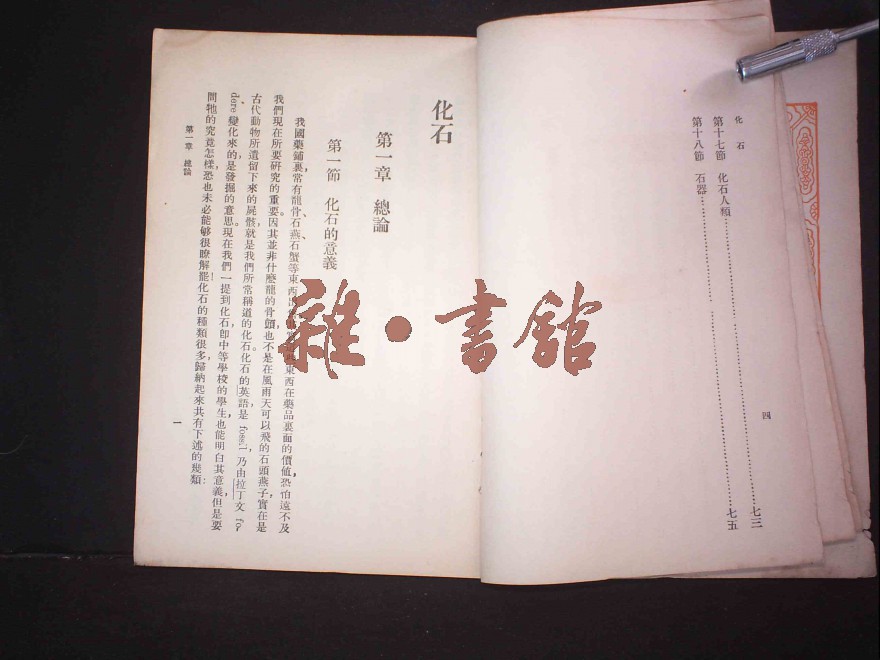 化石
第十七節 化石人類……七三
第十八節 石器……七五
四
化石
第一章 總論
第一節 化石的意義
我國藥鋪裏常有龍骨、石燕、石蟹等東西出售東西在藥品裏面的價値,恐怕遠不及
我們現在所要研究的重要。因其並非什麽龍的骨頭,也不是在風雨天可以飛的石頭燕子,實在是
古代動物所遺留下來的屍骸,就是我們所常稱道的化石。化石的英語是 fossil,乃由拉丁文 fo-
dere 變化來的,是發掘的意思。現在我們一提到化石,卽中等學校的學生也能明白其意義,但是要
問牠的究竟怎樣,恐也未必能够很瞭解罷!化石的種類很多,歸納起來共有下述的幾類:
第一章 總論
一
雜·書館